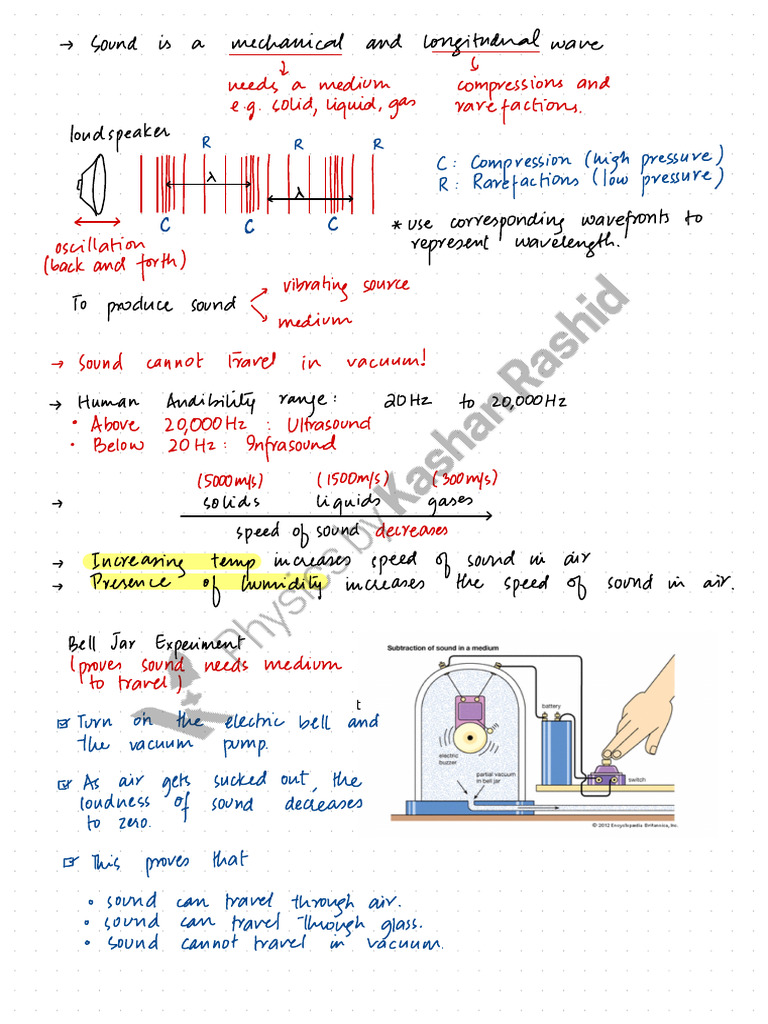 → Sound is a mechanical and longitudnal wave
needs a medium
e.g. solid, liquid, gas
compressions and
rarefactions.
loudspeaker
R R R
λ λ
C C C
C: Compression (high pressure)
R: Rarefactions (low pressure)
oscillation
(back and forth)
* use corresponding wavefronts to
represent wavelength.
To produce sound
vibrating source
medium
→ Sound cannot travel in vacuum!
→ Human Audibility range: 20Hz to 20,000Hz
• Above 20,000Hz : Ultrasound
• Below 20Hz: Infrasound
(5000m/s) (1500m/s) (300m/s)
→ solids liquids gases
speed of sound decreases
→ Increasing temp increases speed of sound in air
→ Presence of humidity increases the speed of sound in air.
Physics by Kashan Rashid
Bell Jar Experiment
(proves sound needs medium
to travel)
Turn on the electric bell and
t
the vacuum pump.
As air gets sucked out, the
loudness of sound decreases
to zero.
This proves that
• sound can travel through air.
• sound can travel through glass.
• sound cannot travel in vacuum.
Subtraction of sound in a medium
battery
electric
buzzer
partial vacuum
in bell jar
switch
© 2012 Encyclopædia Britannica, Inc.